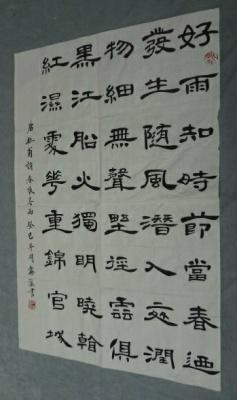 好雨知時節當春迺
發生隨風潛入夜潤
物細無聲野徑雲俱
黑江船火獨明曉看
紅濕處花重錦官城
唐杜甫詩春夜喜雨癸巳年書